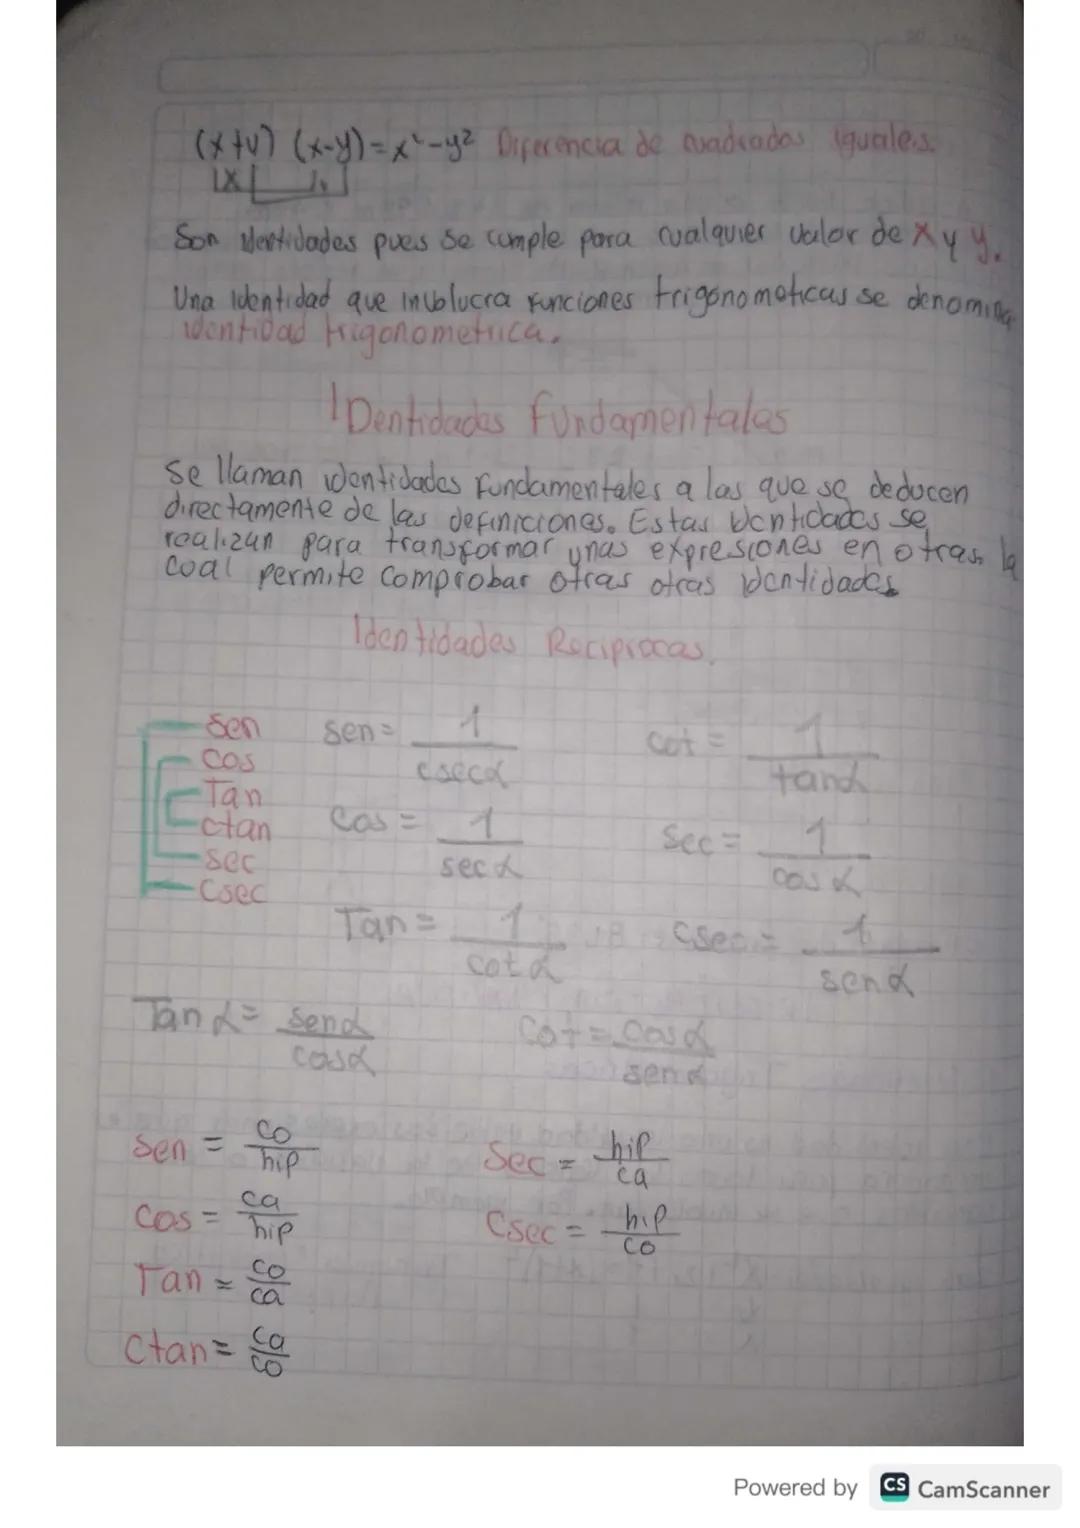 (x+y) (x-y)=x²-y² Diferencia de cuadrados iguales.
Son identidades pues se cumple para cualquier valor de x y y.
Una identidad que involucra funciones trigonometicas se denomina
identidad trigonometrica.
IDentidades fundamentales
Se llaman identidades fundamentales a las que se deducen
directamente de las definiciones. Estas identidades se
realizan para transformar unas expresiones en otras, la
coal permite comprobar otras otras identidades
Identidades Reciprocas.
sen
cos
Tan
ctan
sec
Csec
sen = 1/cscα
cot = 1/tanα
Cos = 1/secα
Sec = 1/cosα
Tan = 1/cotα
Csec = 1/senα
Tan α = senα/cosα
Cot = cosα/senα
Sen = co/hip
Sec = hip/ca
Cos = ca/hip
Csec = hip/co
Tan = co/ca
Ctan = ca/co
Powered by CS CamScanner